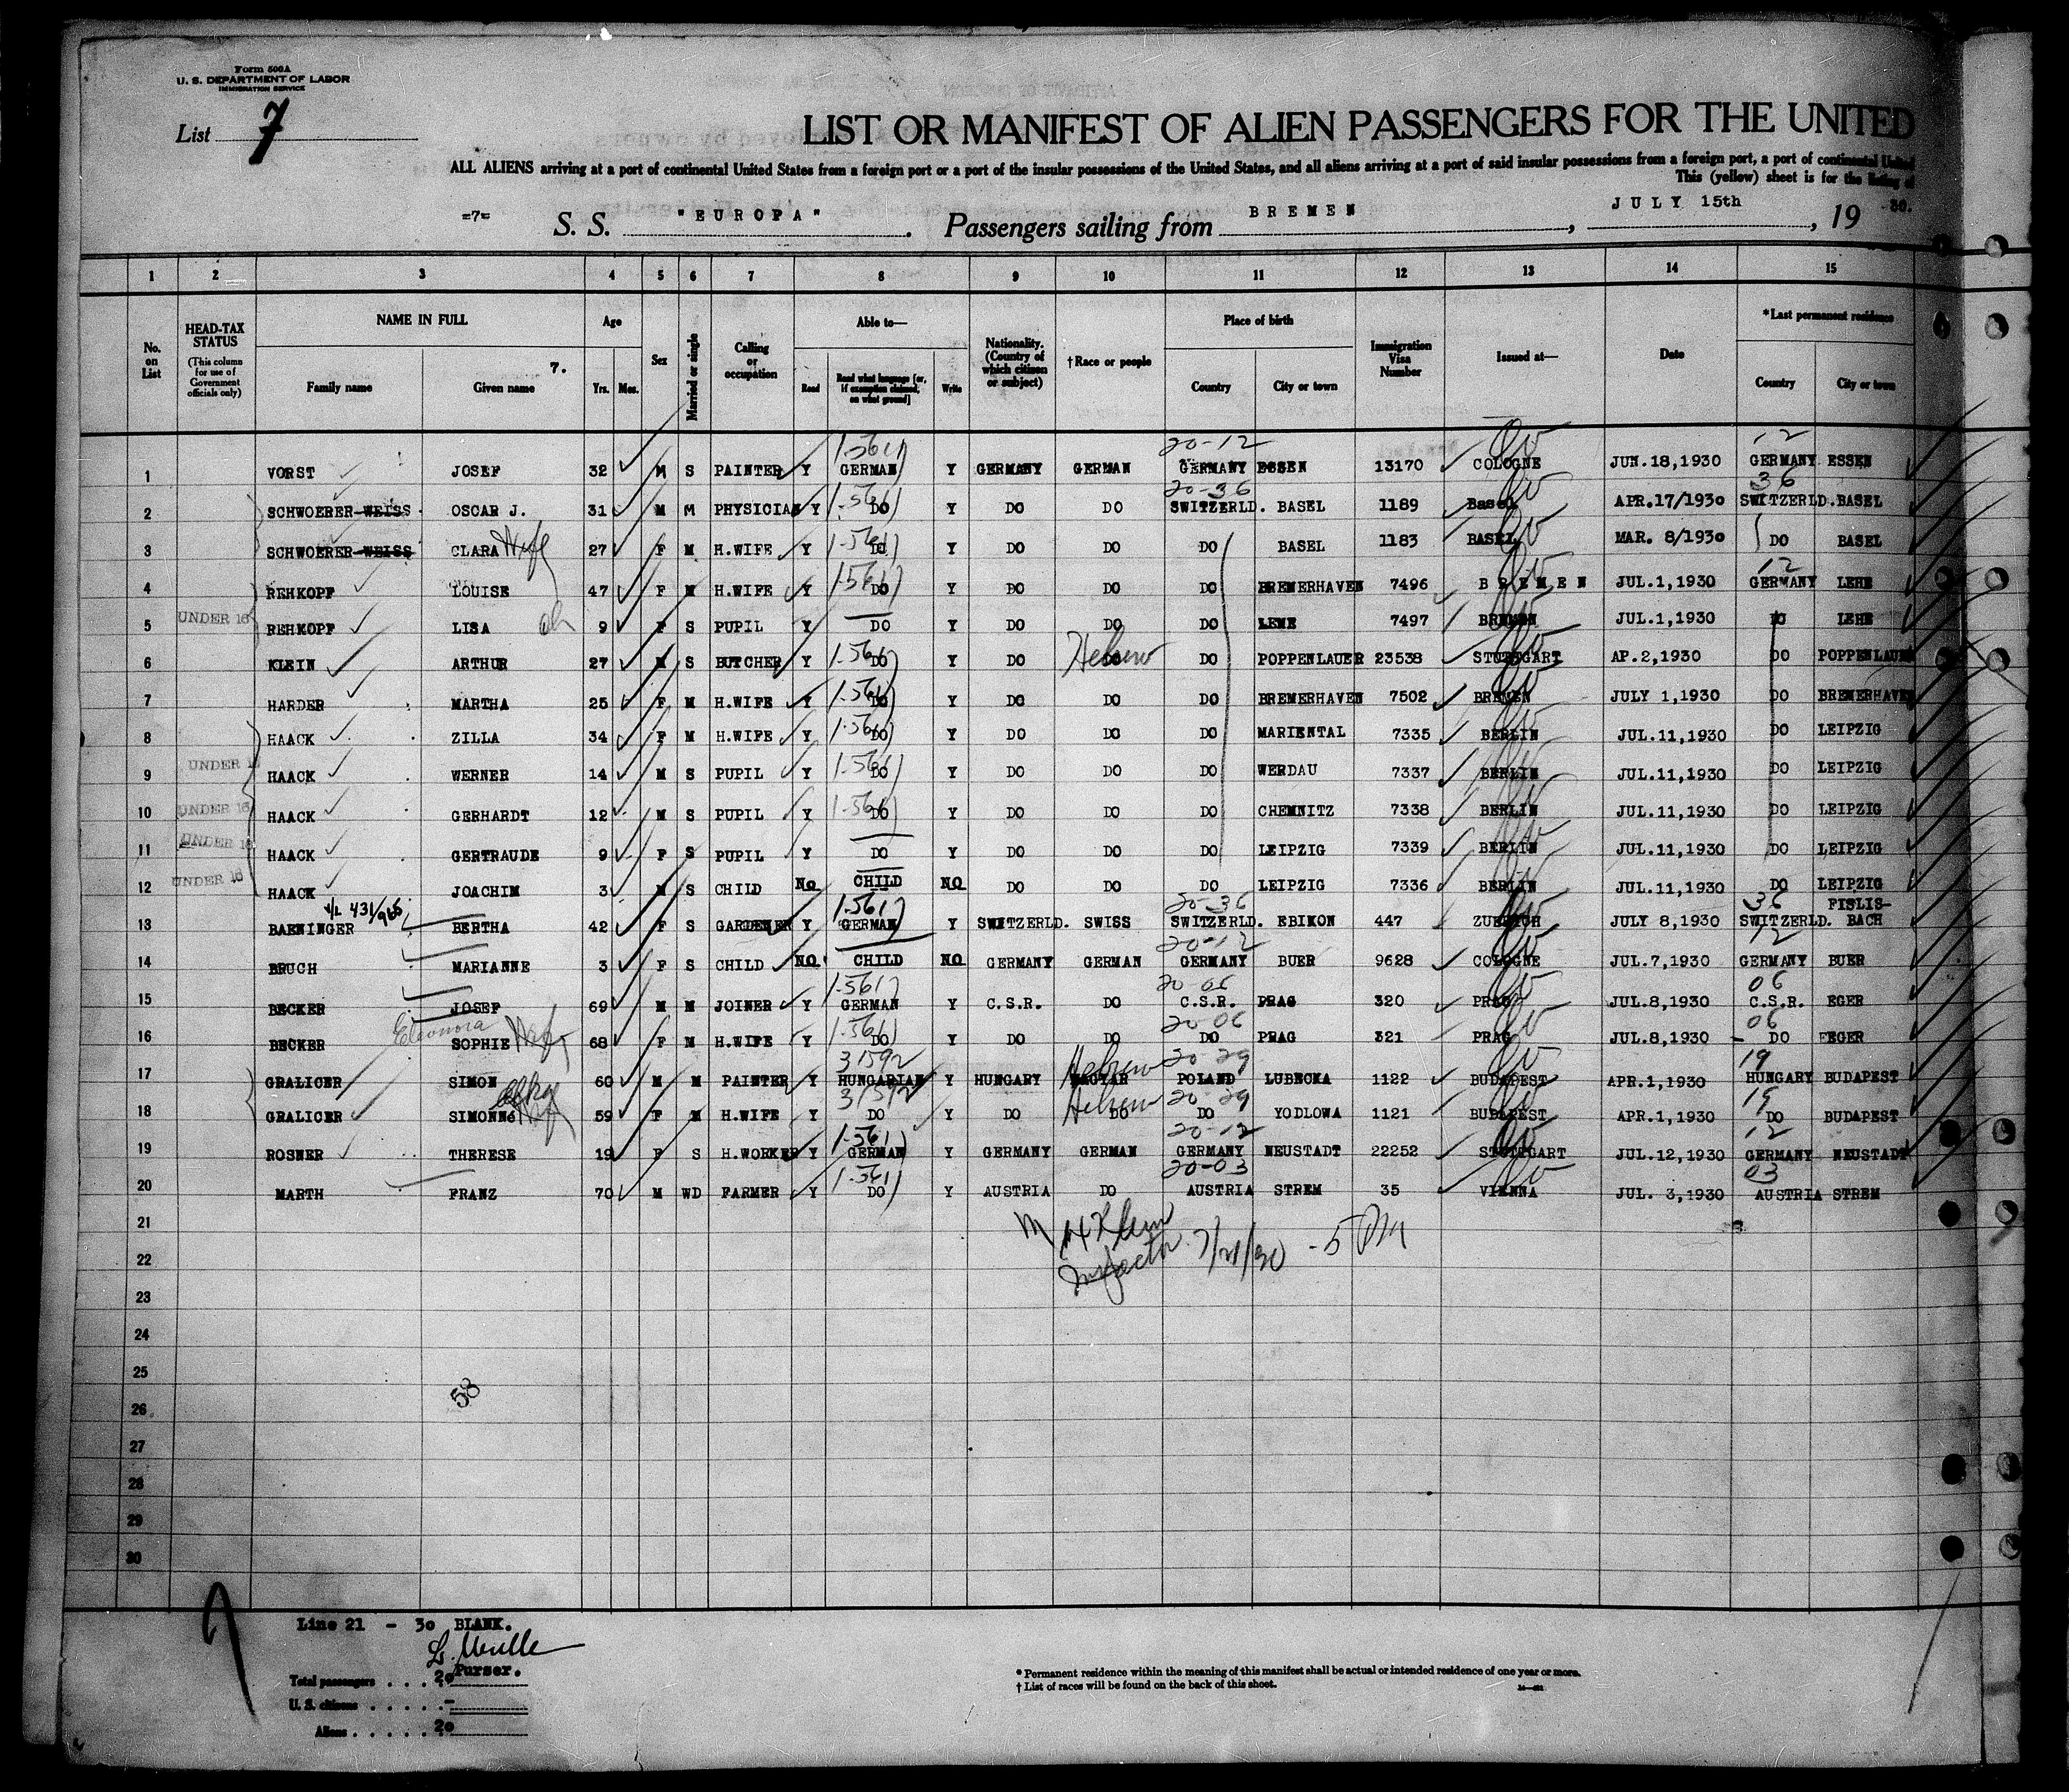 Form 500A
U. S. DEPARTMENT OF LABOR
IMMIGRATION SERVICE
List 7
LIST OR MANIFEST OF ALIEN PASSENGERS FOR THE UNITED
ALL ALIENS arriving at a port of continental United States from a foreign port or a port of the insular possessions of the United States, and all aliens arriving at a port of said insular possessions from a foreign port, a port of continental United
This (yellow) sheet is for the listing of
=7= S. S. "EUROPA". Passengers sailing from BREMEN, JULY 15th, 19 30.
1 2 3 4 5 6 7 8 9 10 11 12 13 14 15
No. on List
HEAD-TAX STATUS (This column for use of Government officials only)
NAME IN FULL 7. Family name Given name
Age Yrs. Mos.
Sex
Married or single
Calling or occupation
Able to— Read Read what language [or, if exemption claimed, on what ground] Write
Nationality. (Country of which citizen or subject)
† Race or people
Place of birth Country City or town
Immigration Visa Number
Issued at—
Date
* Last permanent residence Country City or town
1 VORST JOSEF 32 M S PAINTER Y GERMAN 1-561 Y GERMANY GERMAN 20-12 GERMANY ESSEN 13170 COLOGNE JUN.18,1930 12 GERMANY ESSEN
2 SCHWOERER-WEISS OSCAR J. 31 M M PHYSICIAN Y 1-561 DO Y DO DO 20-36 SWITZERLD. BASEL 1189 Basel APR.17/1930 36 SWITZERLD. BASEL
3 SCHWOERER-WEISS CLARA Wife 27 F M H.WIFE Y 1-561 DO Y DO DO DO BASEL 1183 BASEL MAR. 8/1930 DO BASEL
4 REHKOPF LOUISE 47 F M H.WIFE Y 1-561 DO Y DO DO DO BREMERHAVEN 7496 BREMEN JUL.1,1930 12 GERMANY LEHE
5 UNDER 16 REHKOPF LISA ch 9 F S PUPIL Y DO Y DO DO DO LEHE 7497 BREMEN JUL.1,1930 DO LEHE
6 KLEIN ARTHUR 27 M S BUTCHER Y 1-561 DO Y DO DO Hebrew DO POPPENLAUER 23538 STUTTGART AP.2,1930 DO POPPENLAUER
7 HARDER MARTHA 25 F M H.WIFE Y 1-561 DO Y DO DO DO BREMERHAVEN 7502 BREMEN JULY 1,1930 DO BREMERHAVEN
8 HAACK ZILLA 34 F M H.WIFE Y 1-561 DO Y DO DO DO MARIENTAL 7335 BERLIN JUL.11,1930 DO LEIPZIG
9 UNDER 16 HAACK WERNER 14 M S PUPIL Y 1-561 DO Y DO DO DO WERDAU 7337 BERLIN JUL.11,1930 DO LEIPZIG
10 UNDER 16 HAACK GERHARDT 12 M S PUPIL Y 1-561 DO Y DO DO DO CHEMNITZ 7338 BERLIN JUL.11,1930 DO LEIPZIG
11 UNDER 16 HAACK GERTRAUDE 9 F S PUPIL Y DO Y DO DO DO LEIPZIG 7339 BERLIN JUL.11,1930 DO LEIPZIG
12 UNDER 16 HAACK JOACHIM 3 M S CHILD NO CHILD NO DO DO DO LEIPZIG 7336 BERLIN JUL.11,1930 DO LEIPZIG
13 BAENINGER V/L 431/965 BERTHA 42 F S GARDENER Y 1-561 GERMAN Y SWITZERLD. SWISS 20-36 SWITZERLD. EBIKON 447 ZUERICH JULY 8,1930 36 SWITZERLD. FISLIS-BACH
14 BRUCH MARIANNE 3 F S CHILD NO CHILD NO GERMANY GERMAN 20-12 GERMANY BUER 9628 COLOGNE JUL.7,1930 12 GERMANY BUER
15 BECKER JOSEF 69 M M JOINER Y 1-561 GERMAN Y C.S.R. DO 20-06 C.S.R. PRAG 320 PRAG JUL.8,1930 06 C.S.R. EGER
16 BECKER Eleonora SOPHIE Wife 68 F M H.WIFE Y 1-561 DO Y DO DO 20-06 DO PRAG 321 PRAG JUL.8,1930 06 DO EGER
17 GRALICER SIMON 60 M M PAINTER Y 31592 HUNGARIAN Y HUNGARY MAGYAR Hebrew 20-29 POLAND LUBECKA 1122 BUDAPEST APR.1,1930 19 HUNGARY BUDAPEST
18 GRALICER SIMONNé Wife 59 F M H.WIFE Y 31592 DO Y DO DO Hebrew 20-29 DO YODLOWA 1121 BUDAPEST APR.1,1930 19 DO BUDAPEST
19 ROSNER THERESE 19 F S H.WORKER Y 1-561 GERMAN Y GERMANY GERMAN 20-12 GERMANY NEUSTADT 22252 STUTTGART JUL.12,1930 12 GERMANY NEUSTADT
20 MARTH FRANZ 70 M WD FARMER Y 1-561 DO Y AUSTRIA DO 20-03 AUSTRIA STREM 35 VIENNA JUL. 3,1930 03 AUSTRIA STREM
21
22 Inspector 7/21/30 - 5 PM
23
24
25
26 58
27
28
29
30
Line 21 - 30 BLANK.
Purser.
Total passengers . . . . 20
U. S. citizens . . . . . -
Aliens . . . . . . 20
* Permanent residence within the meaning of this manifest shall be actual or intended residence of one year or more.
† List of races will be found on the back of this sheet.